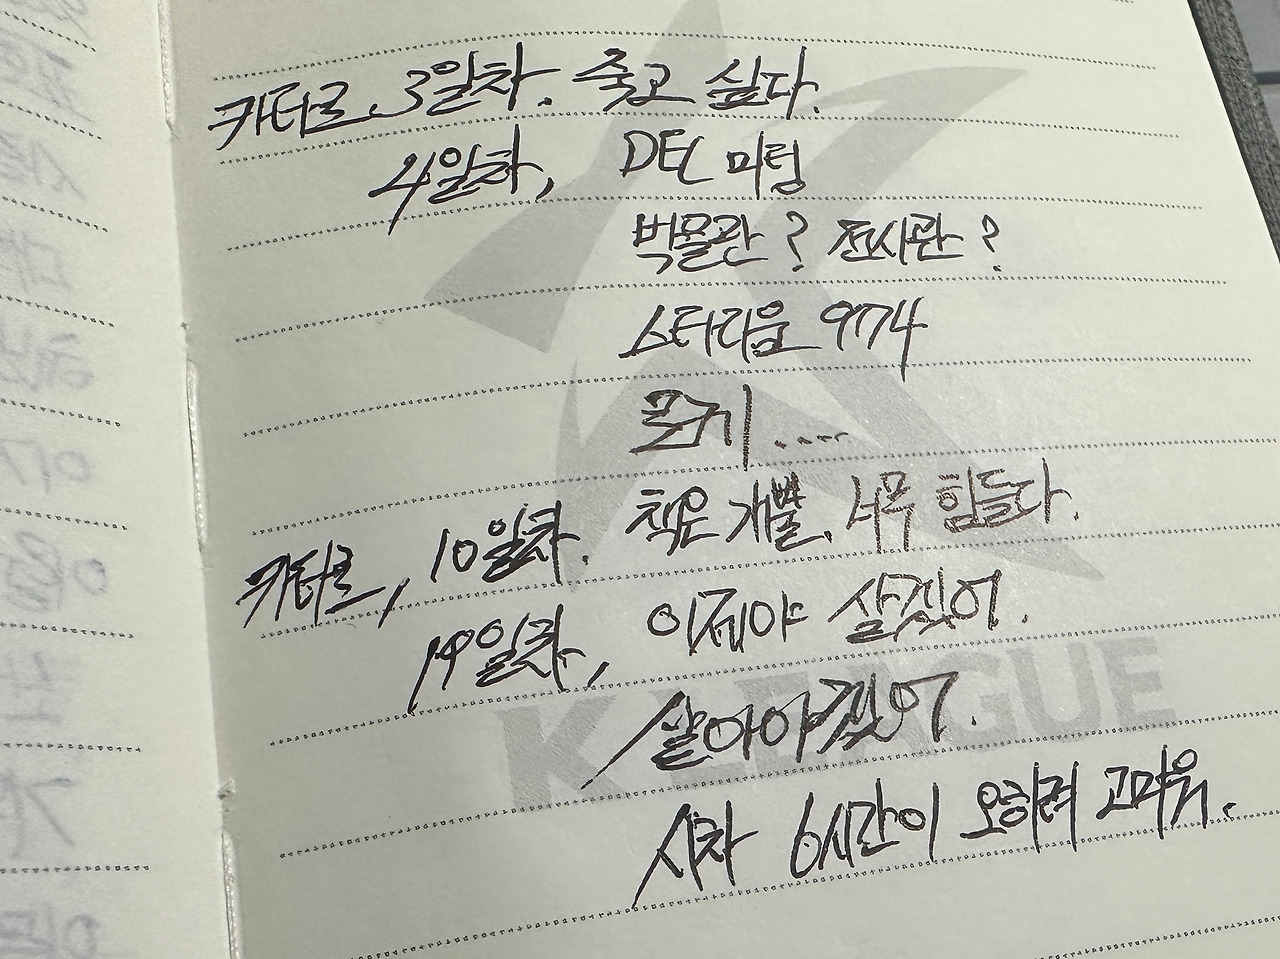 카타르 3일차. 죽고 싶다.
4일차, DEC 미팅
박물관? 전시관?
스타디움 974
크기....
카타르, 10일차. 책은 개뿔. 너무 힘들다.
19일차, 이제야 살겠어.
살아야겠어.
시차 6시간이 오히려 고마워.
K LEAGUE